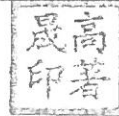 高著
晟印